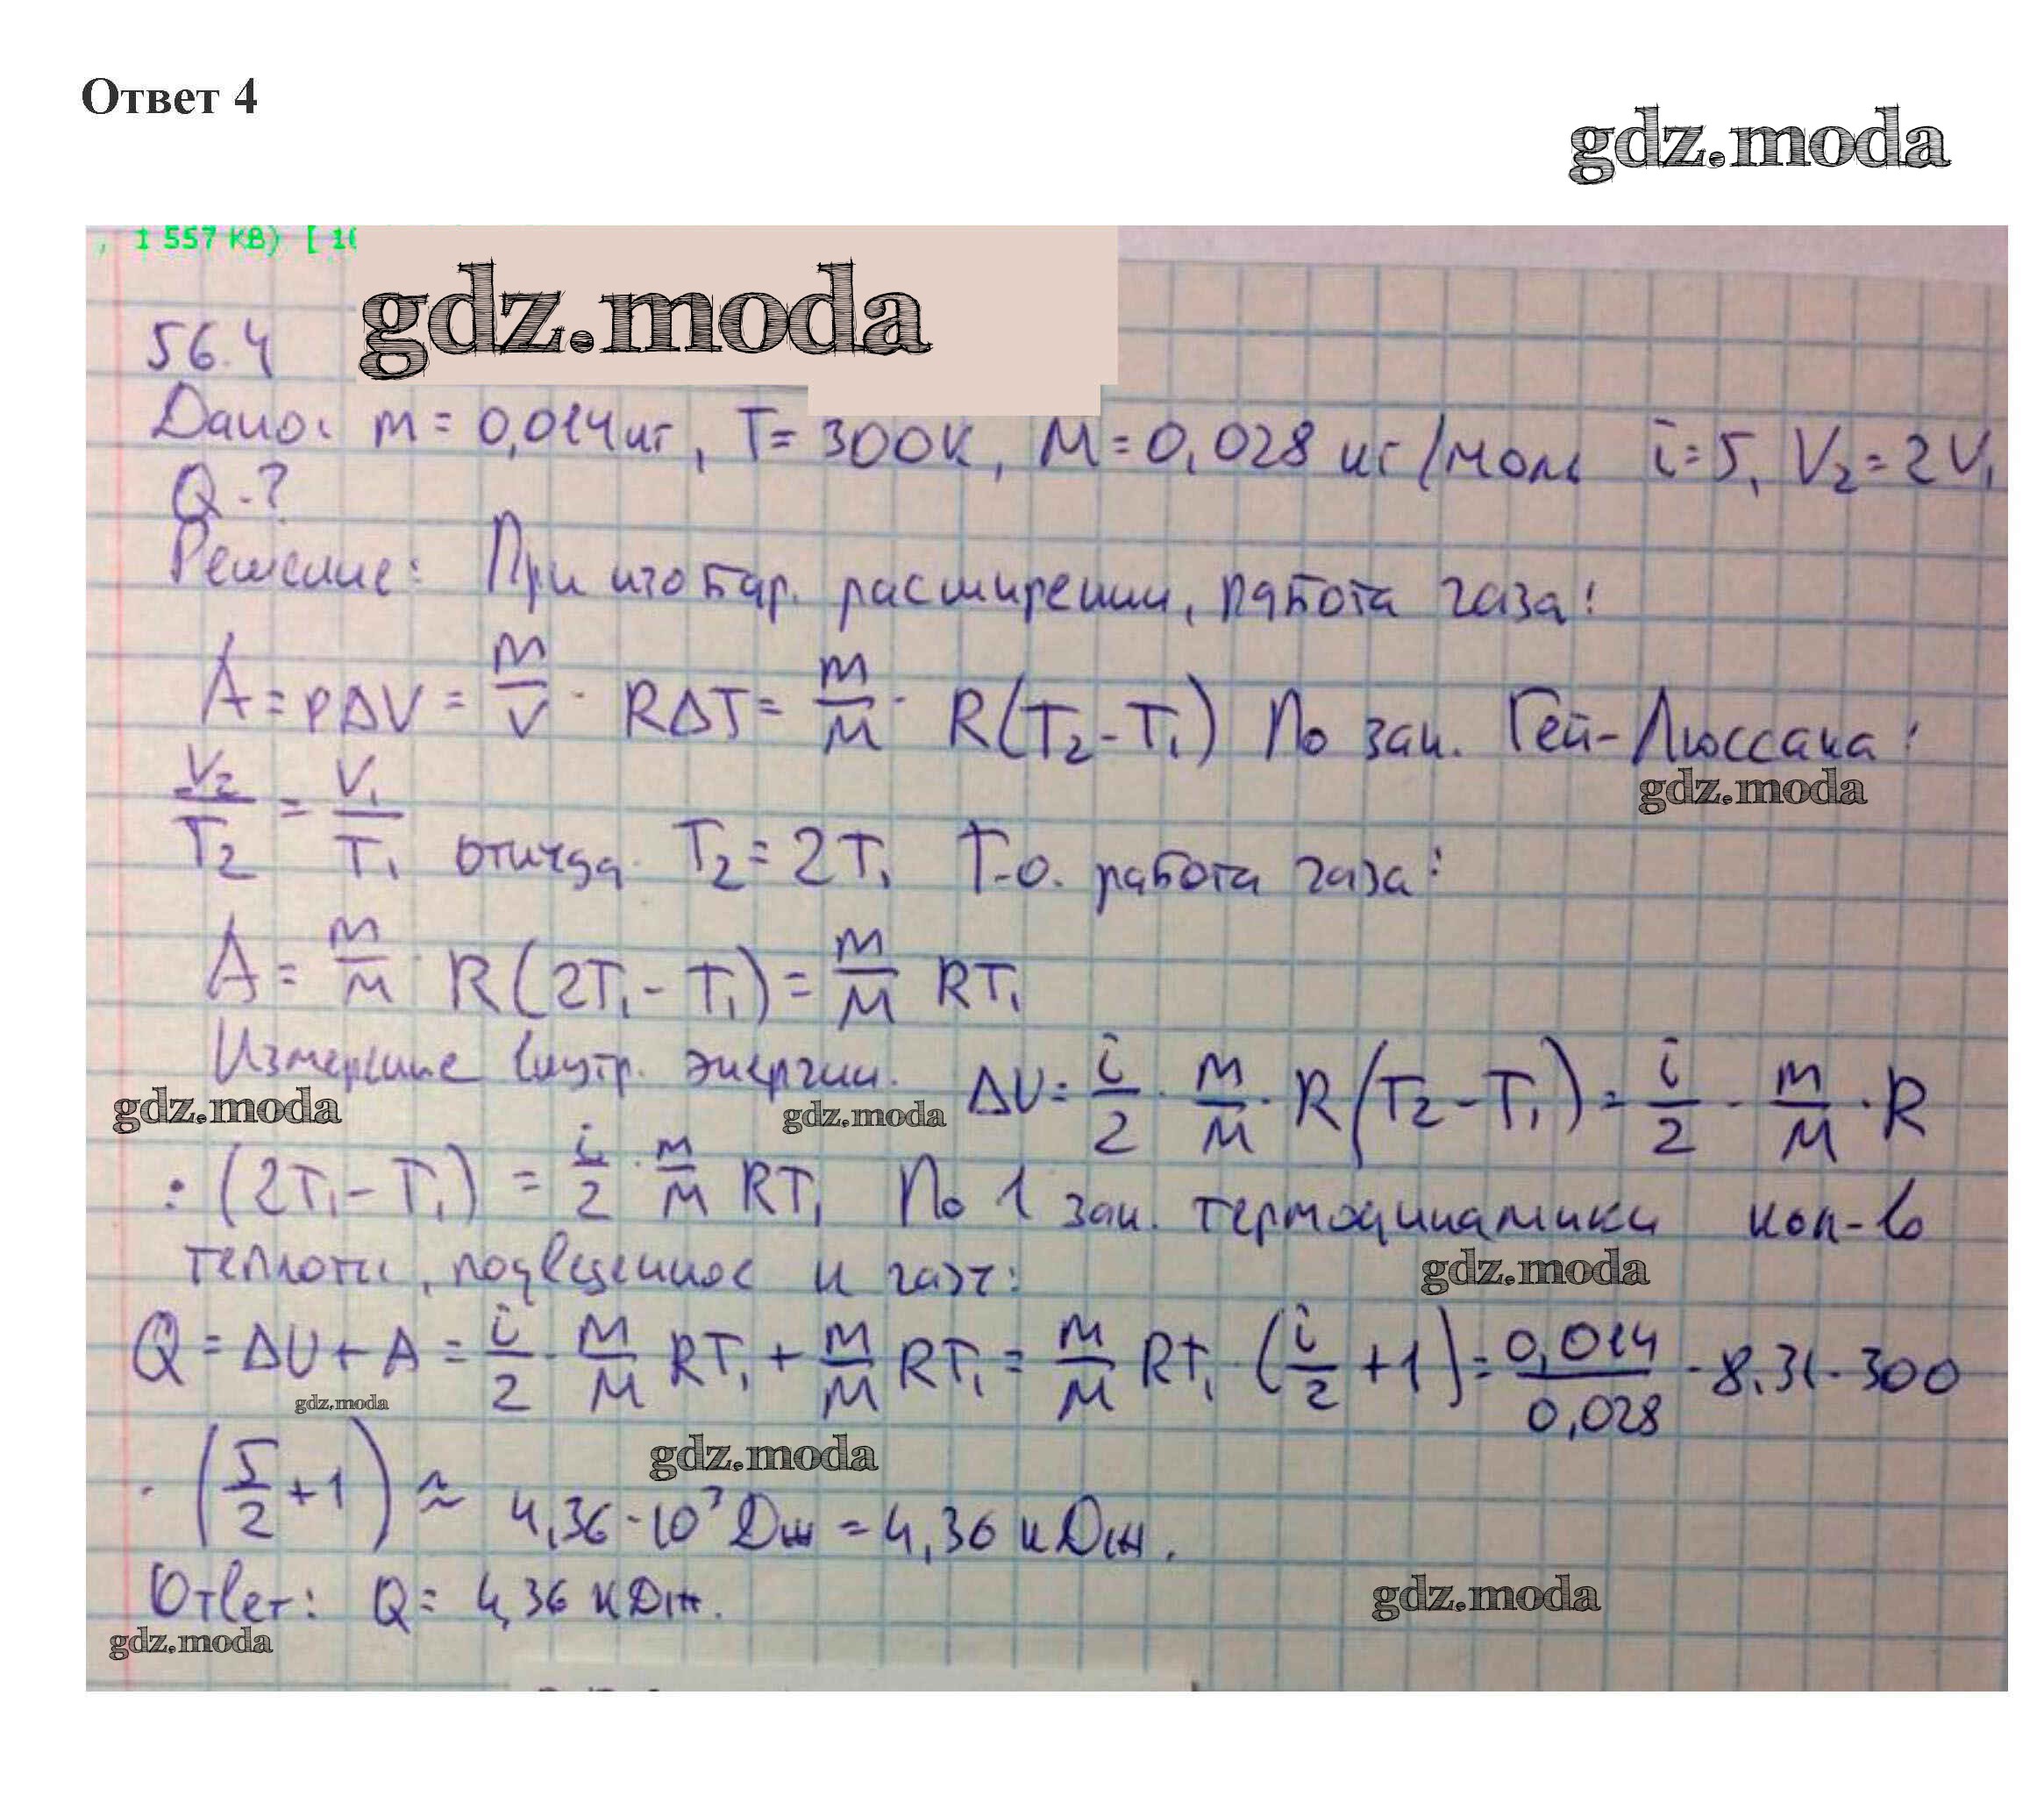 Ответ 4
gdz.moda
, 1 557 KB) [ 1
gdz.moda
56.4
Дано: m = 0,014 кг, T = 300К, M = 0,028 кг/моль i = 5, V₂ = 2V₁
Q - ?
Решение: При изобар. расширении, работа газа:
A = pΔV = m/V · RΔT = m/M · R(T₂ - T₁) По зак. Гей-Люссака:
gdz.moda
V₂/T₂ = V₁/T₁ откуда T₂ = 2T₁ Т.о. работа газа:
A = m/M · R(2T₁ - T₁) = m/M RT₁
Измерение внутр. энергии. ΔU = i/2 · m/M · R(T₂ - T₁) = i/2 · m/M · R
gdz.moda gdz.moda
· (2T₁ - T₁) = i/2 · m/M RT₁ По 1 зак. термодинамики кол-во
теплоты, подведенное к газу:
gdz.moda
Q = ΔU + A = i/2 · m/M RT₁ + m/M RT₁ = m/M RT₁ · (i/2 + 1) = 0,014/0,028 · 8,31 · 300
gdz.moda
gdz.moda
· (5/2 + 1) ≈ 4,36 · 10³ Дж = 4,36 кДж.
Ответ: Q = 4,36 кДж.
gdz.moda
gdz.moda